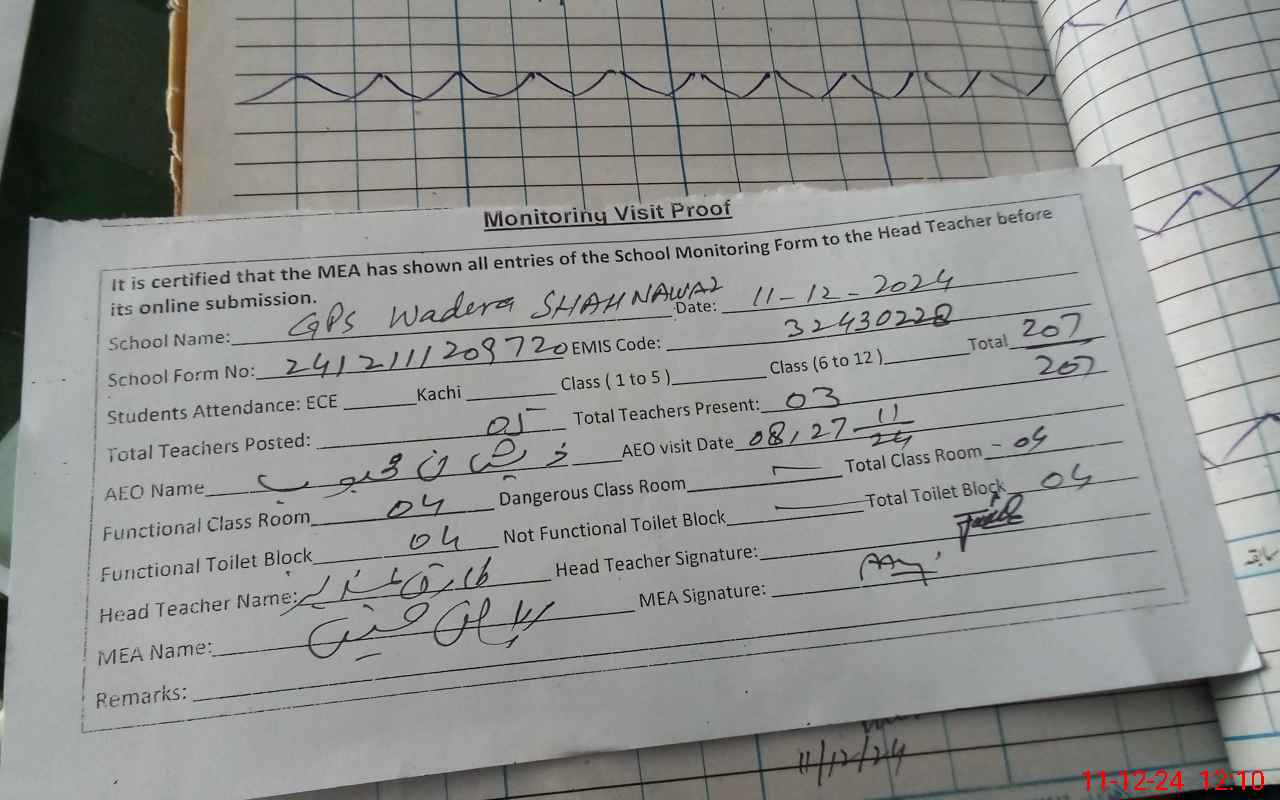 Monitoring Visit Proof
It is certified that the MEA has shown all entries of the School Monitoring Form to the Head Teacher before
its online submission.
School Name: GPS Wadera SHAHNAWAZ Date: 11-12-2024
School Form No: 2412111209720 EMIS Code: 32430228
Students Attendance: ECE Kachi Class ( 1 to 5 ) Class (6 to 12 ) Total 207
207
Total Teachers Posted: 05 Total Teachers Present: 03
AEO Name AEO visit Date 08, 27-11/24
Functional Class Room 04 Dangerous Class Room — Total Class Room - 04
Functional Toilet Block 04 Not Functional Toilet Block — Total Toilet Block 04
Head Teacher Name: طارق Head Teacher Signature:
MEA Name: MEA Signature:
Remarks:
11/12/24
11-12-24 12:10